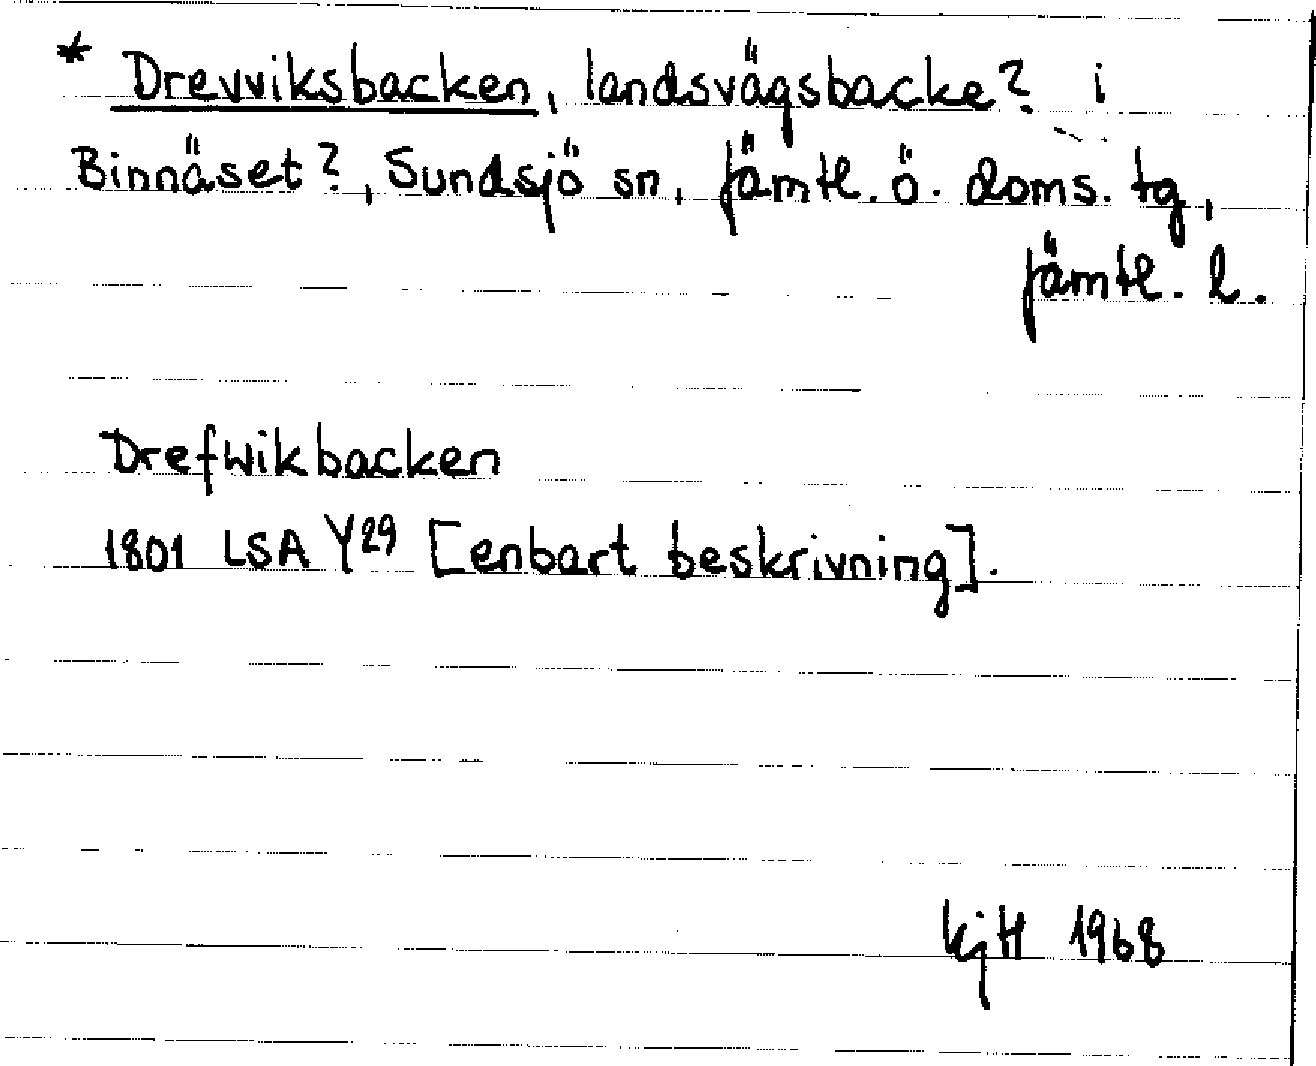 * Drevviksbacken, landsvägsbacke? i
Binnäset?, Sundsjö sn, Jämtl. ö. doms. tg,
Jämtl. l.
Drefwikbacken
1801 LSA Y29 [enbart beskrivning].
KjH 1968